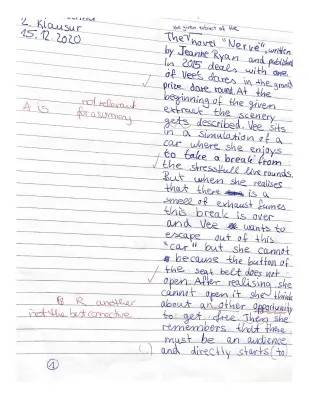 2. Klausur
15.12.2020
the given extract of the
The novel "Nerve", written
by Jeanne Ryan and published
in 2015 deals with one
of Vee's dares in the grand
prize dare round. At the
beginning of the given
extract the scenery
gets described. Vee sits
in a simulation of a
car where she enjoys
to take a break from
the stressfull live rounds.
But when she realises
that there is a
smell of exhaust fumes
this break is over
and Vee wants to
escape out of this
"car" but she cannot
because the button of
the seat belt does not
open. After realising she
cannot open it she thinks
about an other opportunity
to get free. Then she
remembers that there
must be an audience
(.) and directly starts (to)
A is not relevant
for a summary
R another
not the best connective
1